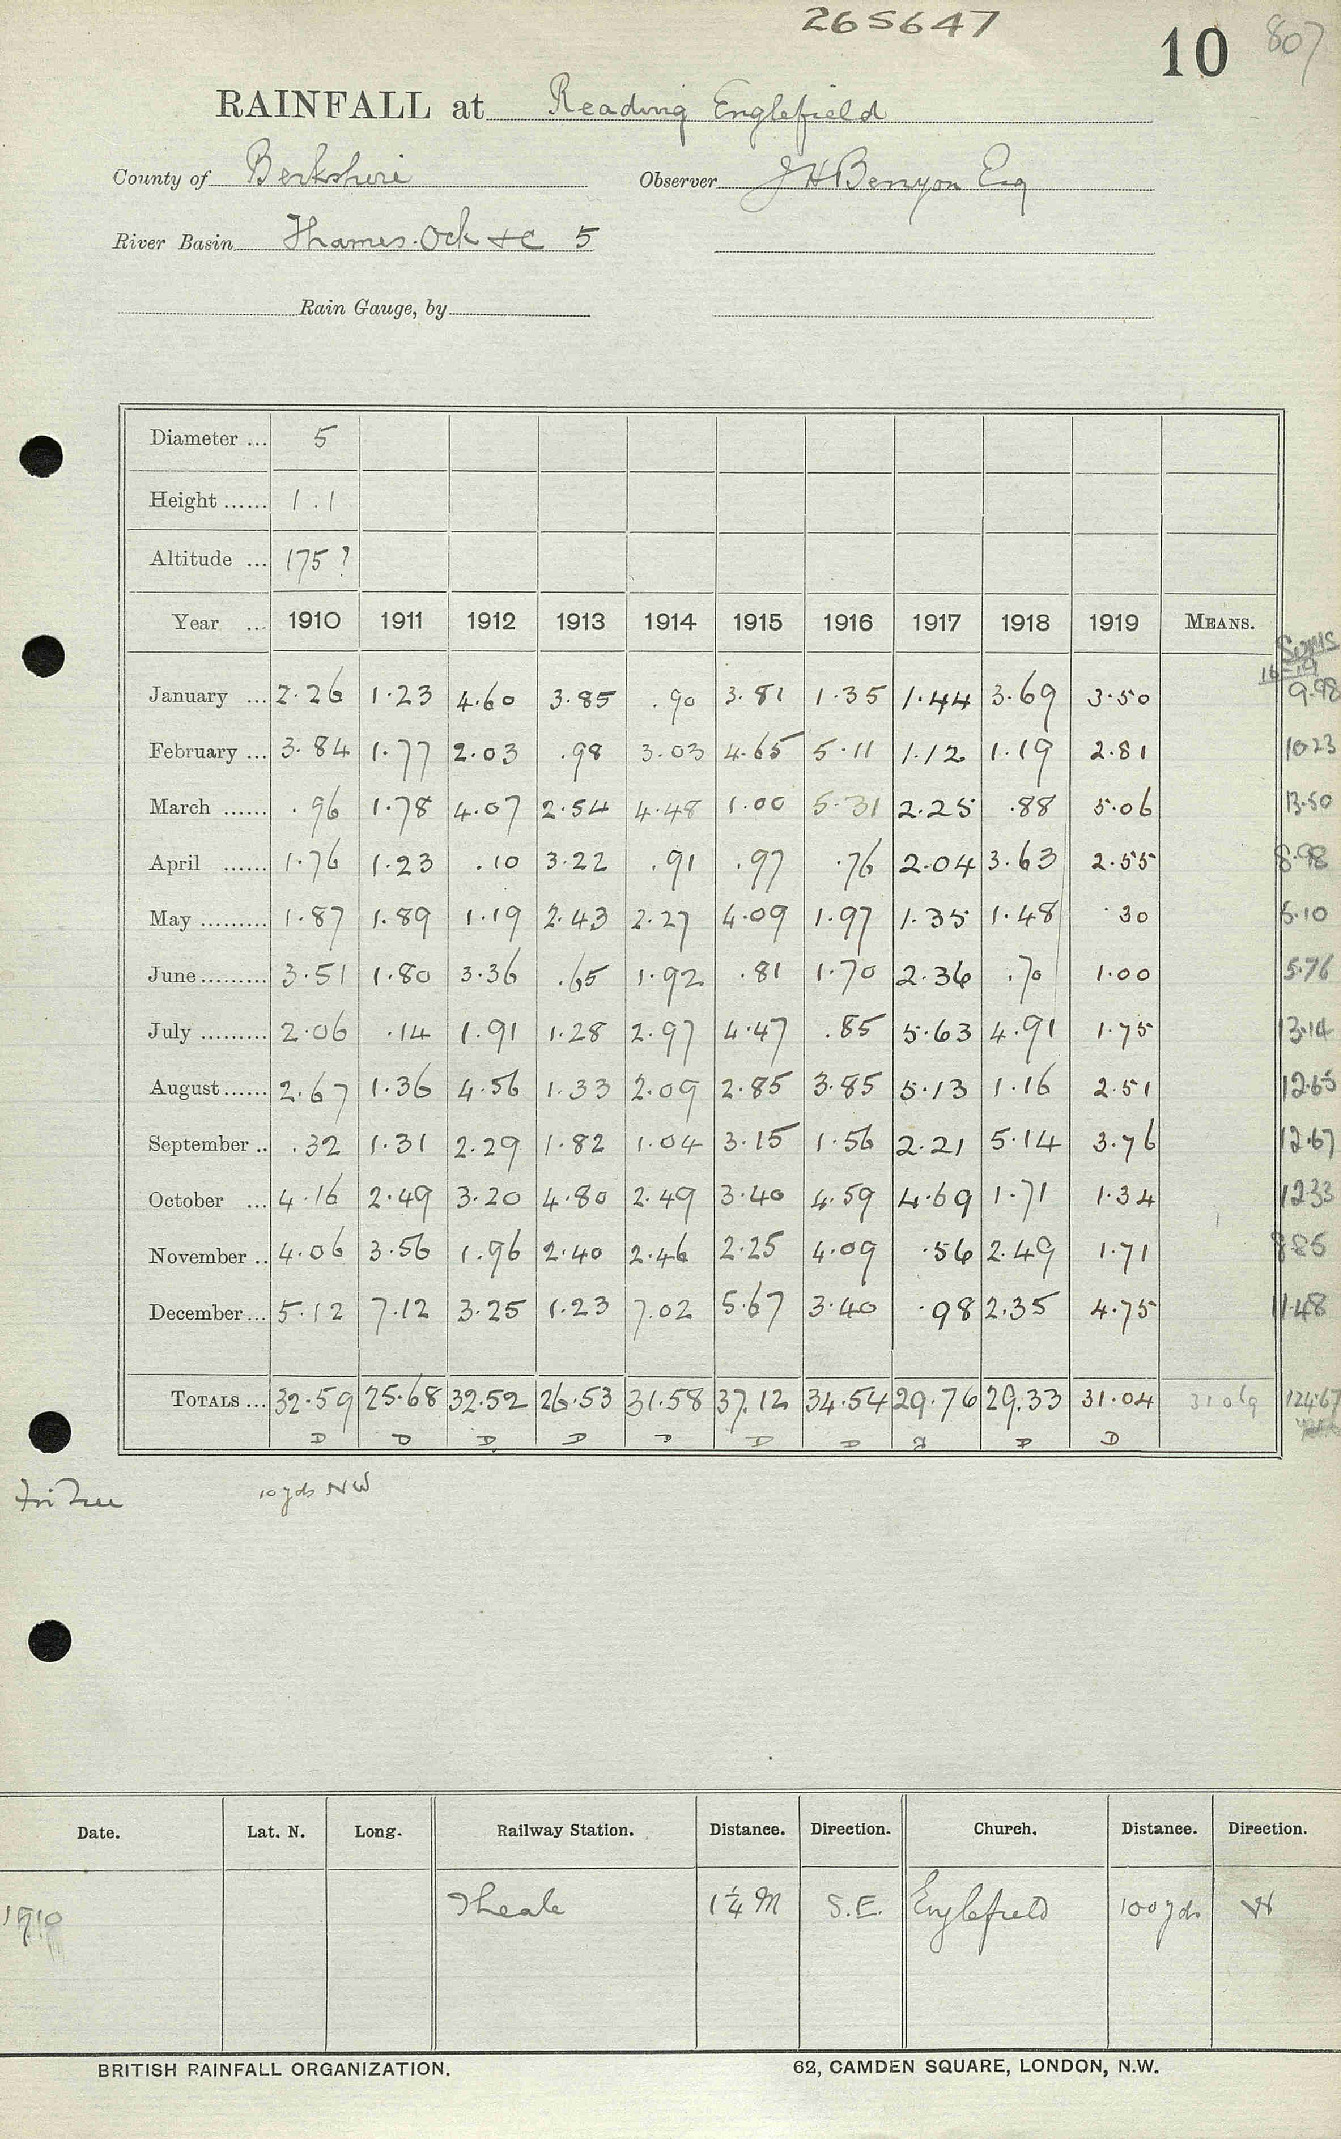 265647
10 807
RAINFALL at Reading Englefield
County of Berkshire Observer J H Benyon Esq
River Basin Thames. Ock &c 5
Rain Gauge, by
Diameter ... 5
Height ...... 1.1
Altitude ... 175?
Year ... 1910 1911 1912 1913 1914 1915 1916 1917 1918 1919 MEANS. Sums
16-19
January ... 2.26 1.23 4.60 3.85 .90 3.81 1.35 1.44 3.69 3.50 9.98
February ... 3.84 1.77 2.03 .98 3.03 4.65 5.11 1.12 1.19 2.81 10.23
March ...... .96 1.78 4.07 2.54 4.48 1.00 5.31 2.25 .88 5.06 13.50
April ...... 1.76 1.23 .10 3.22 .91 .97 .76 2.04 3.63 2.55 8.98
May ......... 1.87 1.89 1.19 2.43 2.27 4.09 1.97 1.35 1.48 .30 5.10
June ......... 3.51 1.80 3.36 .65 1.92 .81 1.70 2.36 .70 1.00 5.76
July ......... 2.06 .14 1.91 1.28 2.97 4.47 .85 5.63 4.91 1.75 13.14
August ...... 2.67 1.36 4.56 1.33 2.09 2.85 3.85 5.13 1.16 2.51 12.65
September .. .32 1.31 2.29 1.82 1.04 3.15 1.56 2.21 5.14 3.76 12.67
October ... 4.16 2.49 3.20 4.80 2.49 3.40 4.59 4.69 1.71 1.34 12.33
November .. 4.06 3.56 1.96 2.40 2.46 2.25 4.09 .56 2.49 1.71 8.85
December ... 5.12 7.12 3.25 1.23 7.02 5.67 3.40 .98 2.35 4.75 11.48
TOTALS ... 32.59 25.68 32.52 26.53 31.58 37.12 34.54 29.76 29.33 31.04 31.069 124.67
D D D D D D D D D
10 yds NW
Date. Lat. N. Long. Railway Station. Distance. Direction. Church. Distance. Direction.
1910 Theale 1¼ M S.E. Englefield 100 yds W
BRITISH RAINFALL ORGANIZATION. 62, CAMDEN SQUARE, LONDON, N.W.